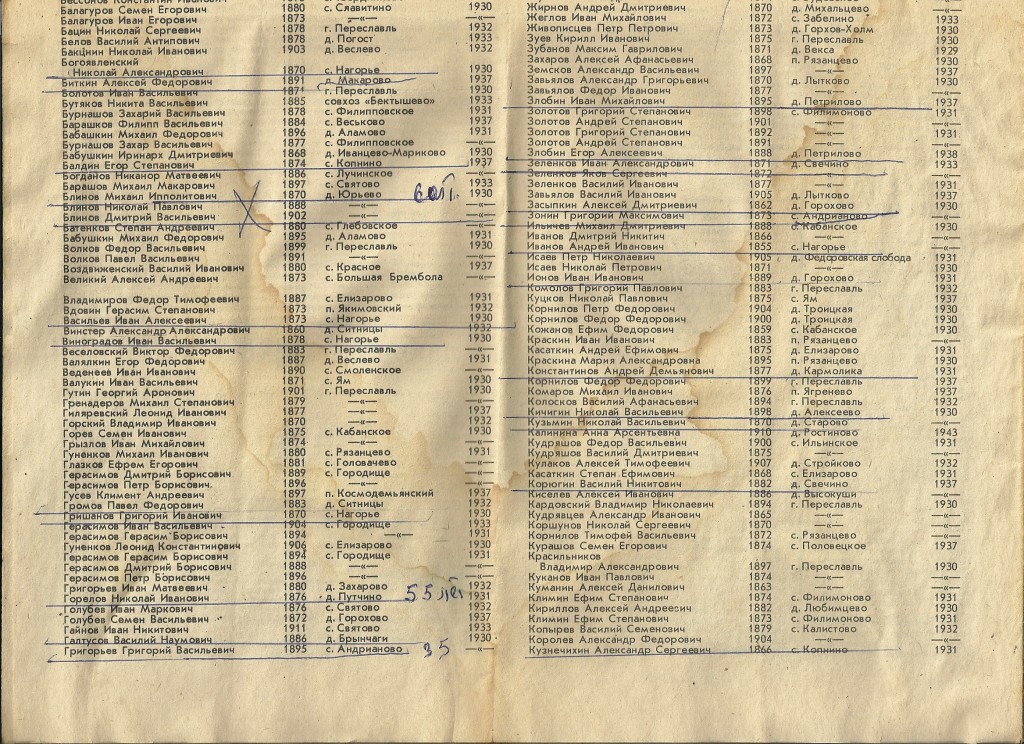 Балагуров Семен Егорович 1880 с. Славитино 1930
Балагуров Иван Егорович 1873 —«— —«—
Бацин Николай Сергеевич 1878 г. Переславль 1932
Белов Василий Антипович 1878 д. Погост 1933
Бакцнин Николай Иванович 1903 д. Веслево 1932
Богоявленский
Николай Александрович 1870 с. Нагорье 1930
Биткин Алексей Федорович 1891 д. Макарово 1937
Волотов Иван Васильевич 1871 г. Переславль 1930
Бутяков Никита Васильевич 1885 совхоз «Бектышево» 1933
Бурнашов Захарий Васильевич 1878 с. Филипповское 1931
Барашков Филипп Васильевич 1884 с. Веськово 1937
Бабашкин Михаил Федорович 1896 д. Аламово 1931
Бурнашов Захар Васильевич 1877 с. Филипповское —«—
Бабушкин Иринарх Дмитриевич 1868 д. Иванцево-Мариково 1930
Балдин Егор Степанович 1874 с. Копнино 1937
Богданов Никанор Матвеевич 1886 с. Лучинское —«—
Барашов Михаил Макарович 1897 с. Святово 1933
Блинов Михаил Ипполитович 1870 д. Юрьево 1930
Блинов Николай Павлович 1888 —«— —«—
Блинов Дмитрий Васильевич 1902 —«— —«—
Батенков Степан Андреевич 1880 с. Глебовское —«—
Бабушкин Михаил Федорович 1895 д. Аламово 1931
Волков Федор Васильевич 1899 г. Переславль 1930
Волков Павел Васильевич 1891 —«— —«—
Воздвиженский Василий Иванович 1880 с. Красное 1937
Великий Алексей Андреевич 1873 с. Большая Брембола —«—
Владимиров Федор Тимофеевич 1887 с. Елизарово 1931
Вдовин Герасим Степанович 1873 п. Якимовский 1932
Васильев Иван Алексеевич 1873 с. Нагорье 1930
Винстер Александр Александрович 1860 д. Ситницы 1932
Виноградов Иван Васильевич 1878 с. Нагорье 1930
Веселовский Виктор Федорович 1883 г. Переславль —«—
Валялкин Егор Федорович 1887 д. Веслево 1931
Веденеев Иван Иванович 1890 с. Смоленское —«—
Валукин Иван Васильевич 1871 с. Ям 1930
Гутин Георгий Аронович 1901 г. Переславль 1930
Гренадеров Михаил Степанович 1879 —«— —«—
Гиляревский Леонид Иванович 1877 —«— 1937
Горский Владимир Иванович 1870 —«— 1932
Горев Семен Иванович 1875 с. Кабанское 1930
Грызлов Иван Михайлович 1874 —«— —«—
Гуненков Михаил Иванович 1880 с. Рязанцево 1931
Глазков Ефрем Егорович 1881 с. Головачево —«—
Герасимов Дмитрий Борисович 1889 с. Городище —«—
Герасимов Петр Борисович 1896 —«— —«—
Гусев Климент Андреевич 1897 п. Космодемьянский 1937
Громов Павел Федорович 1883 д. Ситницы 1932
Гришанов Григорий Иванович 1870 с. Нагорье 1930
Герасимов Иван Васильевич 1904 с. Городище 1933
Герасимов Герасим Борисович 1894 —«— —«—
Гуненков Леонид Константинович 1906 с. Елизарово 1930
Герасимов Герасим Борисович 1894 с. Городище 1931
Герасимов Дмитрий Борисович 1888 —«— —«—
Герасимов Петр Борисович 1896 —«— —«—
Григорьев Иван Матвеевич 1880 д. Захарово 1932
Горелов Николай Иванович 1876 д. Путчино 55 лет 1931
Голубев Иван Маркович 1876 с. Святово 1932
Голубев Семен Васильевич 1872 д. Горохово 1937
Гайнов Иван Никитович 1911 с. Святово 1933
Галтусов Василий Наумович 1886 д. Брынчаги 1930
Григорьев Григорий Васильевич 1895 с. Андрианово 35 —«—
Жирнов Андрей Дмитриевич 1870 д. Михальцево —«—
Жеглов Иван Михайлович 1872 с. Забелино 1933
Живописцев Петр Петрович 1873 д. Горхов-Холм 1930
Зуев Кирилл Иванович 1875 г. Переславль 1930
Зубанов Максим Гаврилович 1871 д. Векса 1929
Захаров Алексей Афанасьевич 1868 п. Рязанцево 1930
Земсков Александр Васильевич 1897 —«— 1937
Завьялов Александр Григорьевич 1870 д. Лыткино 1930
Завьялов Федор Иванович 1877 —«— —«—
Злобин Иван Михайлович 1895 д. Петрилово 1937
Золотов Григорий Степанович 1898 с. Филимоново 1931
Золотов Андрей Степанович 1901 —«— —«—
Золотов Григорий Степанович 1892 —«— 1931
Золотов Андрей Степанович 1891 —«— —«—
Злобин Егор Алексеевич 1888 д. Петрилово 1938
Зеленков Иван Александрович 1871 д. Свечино 1933
Зеленков Яков Сергеевич 1872 —«— —«—
Зеленков Василий Иванович 1877 —«— —«—
Завьялов Василий Иванович 1905 д. Лыткино 1937
Засыпкин Алексей Дмитриевич 1862 д. Горохово 1930
Зонин Григорий Максимович 1873 с. Андрианово —«—
Ильичев Михаил Дмитриевич 1888 с. Кабанское 1930
Иванов Дмитрий Никитич 1866 —«— —«—
Иванов Андрей Иванович 1855 с. Нагорье —«—
Исаев Петр Николаевич 1905 д. Федоровская слобода 1931
Исаев Николай Петрович 1871 —«— 1930
Ионов Иван Иванович 1889 д. Горохово 1931
Комолов Григорий Павлович 1883 г. Переславль 1932
Куцков Николай Павлович 1875 с. Ям 1937
Корнилов Петр Федорович 1904 д. Троицкая 1930
Корнилов Федор Федорович 1900 д. Троицкая 1930
Кожанов Ефим Федорович 1859 с. Кабанское 1930
Краскин Иван Иванович 1883 п. Рязанцево —«—
Касаткин Андрей Ефимович 1875 д. Елизарово 1931
Краскина Мария Александровна 1895 п. Рязанцево 1930
Константинов Андрей Демьянович 1877 д. Кармолика 1931
Корнилов Федор Федорович 1899 г. Переславль 1937
Комаров Михаил Иванович 1876 п. Ягренево 1937
Колосков Василий Афанасьевич 1894 г. Переславль 1932
Кичигин Николай Васильевич 1898 д. Алексеево 1930
Кузьмин Николай Васильевич 1870 д. Старово —«—
Калинина Анна Арсентьевна 1910 д. Ростиново 1943
Кудряшов Федор Васильевич 1900 с. Ильинское 1931
Кудряшов Василий Дмитриевич 1875 —«— —«—
Кулаков Алексей Тимофеевич 1907 д. Стройково 1932
Касаткин Степан Ефимович 1868 с. Елизарово 1931
Корюгин Василий Никитович 1882 д. Свечино 1937
Киселев Алексей Иванович 1886 д. Высокуши —«—
Кардовский Владимир Николаевич 1894 г. Переславль 1930
Кудрявцев Александр Иванович 1865 —«— —«—
Коршунов Николай Сергеевич 1870 —«— —«—
Корнилов Тимофей Васильевич 1872 с. Рязанцево —«—
Курашов Семен Егорович 1874 с. Половецкое 1937
Красильников
Владимир Александрович 1897 г. Переславль 1930
Куканов Иван Павлович 1874 —«— —«—
Куманин Алексей Данилович 1863 —«— —«—
Климин Ефим Степанович 1874 с. Филимоново 1931
Кириллов Алексей Андреевич 1882 д. Любимцево 1930
Климин Ефим Степанович 1873 с. Филимоново 1931
Копырев Василий Семенович 1879 с. Калистово 1932
Королев Александр Федорович 1904 —«— —«—
Кузнечихин Александр Сергеевич 1866 с. Копнино 1931